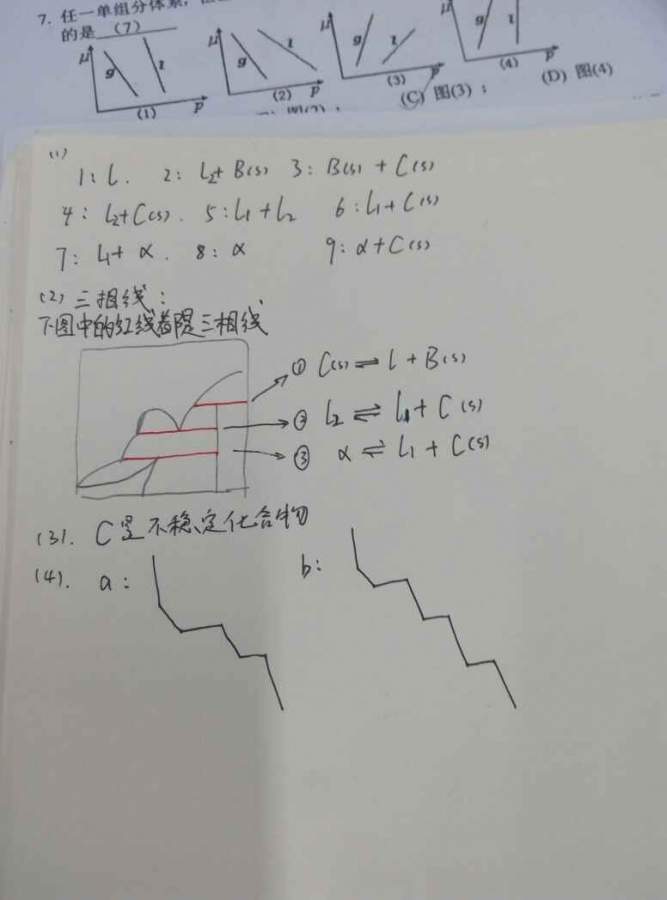 7. 任一单组分体系,
的是 (7)
μ g l (1) p
μ g l (2) p
μ g l (3) p
μ g l (4)
(C) 图(3); (D) 图(4)
(1)
1: L. 2: L₂+B(s) 3: B(s) + C(s)
4: L₂+C(s). 5: L₁+L₂ 6: L₁+C(s)
7: L₁+α. 8: α 9: α+C(s)
(2) 三相线:
下图中的红线都是三相线
① C(s) ⇌ l + B(s)
② L₂ ⇌ L₁ + C(s)
③ α ⇌ L₁ + C(s)
(3). C是不稳定化合物
(4). a: b: